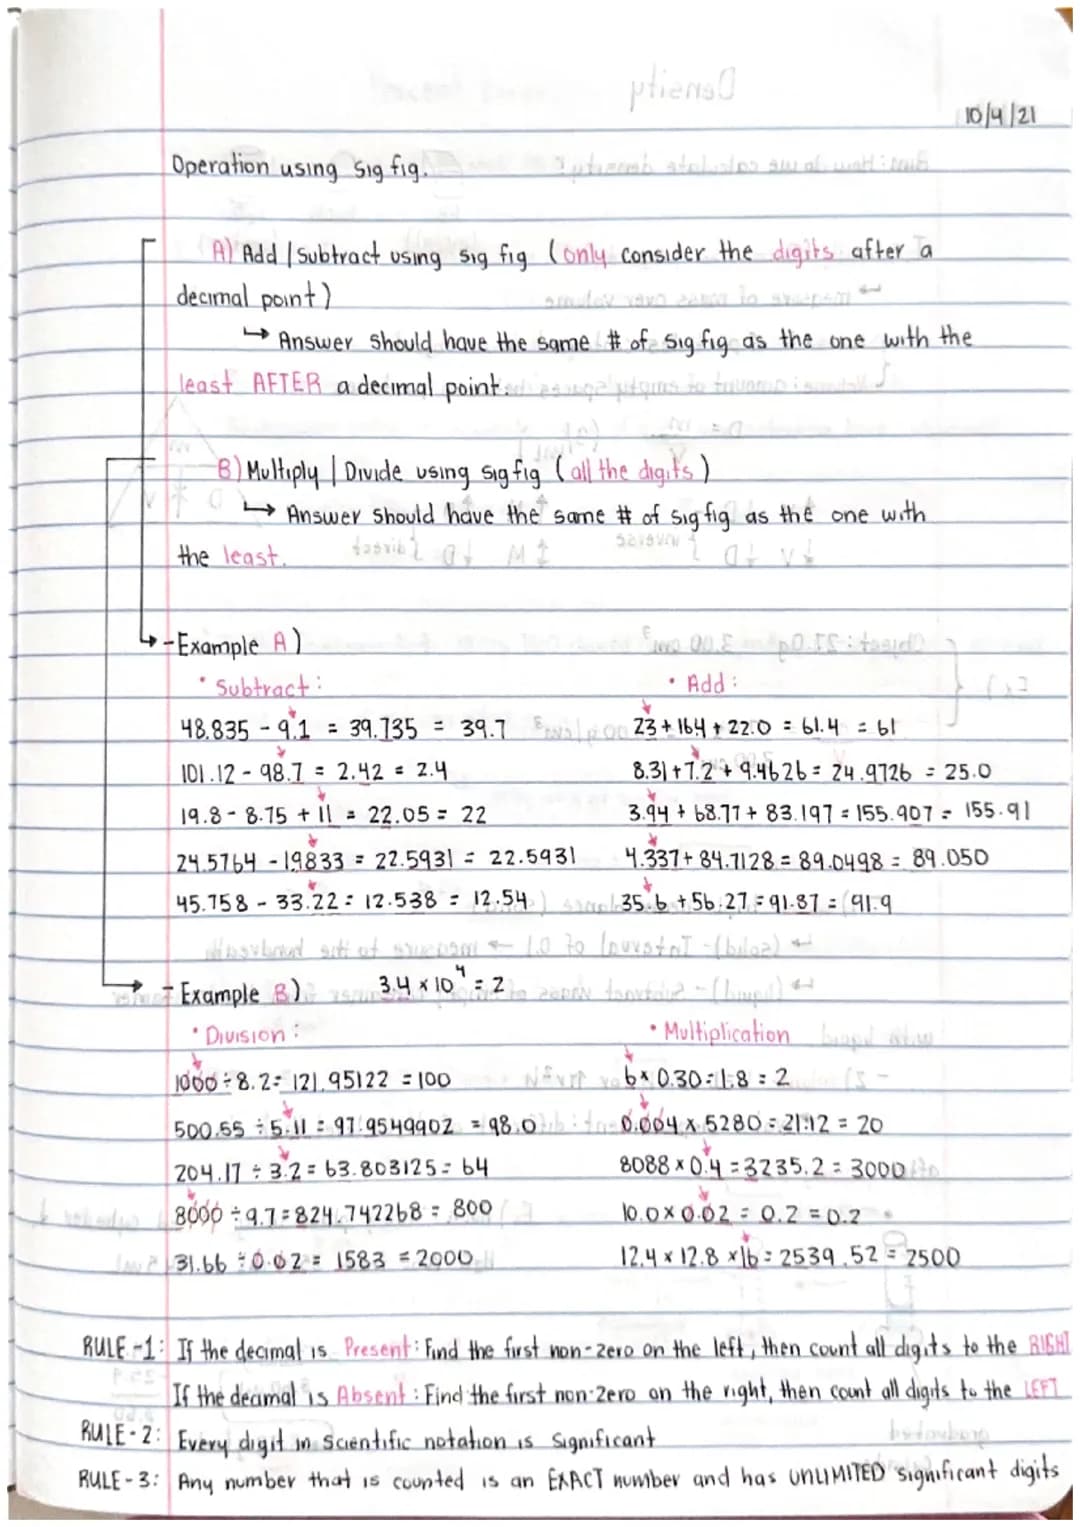 10/4/21
Operation using sig fig.
A) Add | Subtract using sig fig (only consider the digits after a
decimal point)
↳ Answer should have the same # of sig fig as the one with the
least AFTER a decimal point.
B) Multiply | Divide using sig fig (all the digits)
↳ Answer should have the same # of sig fig as the one with
the least.
- Example A)
• Subtract:
48.835 - 9.1 = 39.735 = 39.7
101.12 - 98.7 = 2.42 = 2.4
19.8 - 8.75 + 11 = 22.05 = 22
24.5764 - 1.9833 = 22.5931 = 22.5931
45.758 - 33.22 = 12.538 = 12.54
• Add:
23 + 16.4 + 22.0 = 61.4 = 61
8.31 + 7.2 + 9.4626 = 24.9726 = 25.0
3.94 + 68.77 + 83.197 = 155.907 = 155.91
4.337 + 84.7128 = 89.0498 = 89.050
35.6 + 56.27 = 91.87 = 91.9
- Example B) 3.4 × 10⁴ = 2
• Division:
1000 ÷ 8.2 = 121.95122 = 100
500.55 ÷ 5.11 = 97.9549902 = 98.0
204.17 ÷ 3.2 = 63.803125 = 64
8000 ÷ 9.7 = 824.742268 = 800
31.66 ÷ 0.02 = 1583 = 2000
• Multiplication
6 × 0.30 = 1.8 = 2
0.004 × 5280 = 21.12 = 20
8088 × 0.4 = 3235.2 = 3000
10.0 × 0.02 = 0.2 = 0.2
12.4 × 12.8 × 16 = 2539.52 = 2500
RULE-1: If the decimal is Present: Find the first non-zero on the left, then count all digits to the RIGHT
If the decimal is Absent: Find the first non-zero on the right, then count all digits to the LEFT
RULE-2: Every digit in scientific notation is significant
RULE-3: Any number that is counted is an EXACT number and has UNLIMITED significant digits